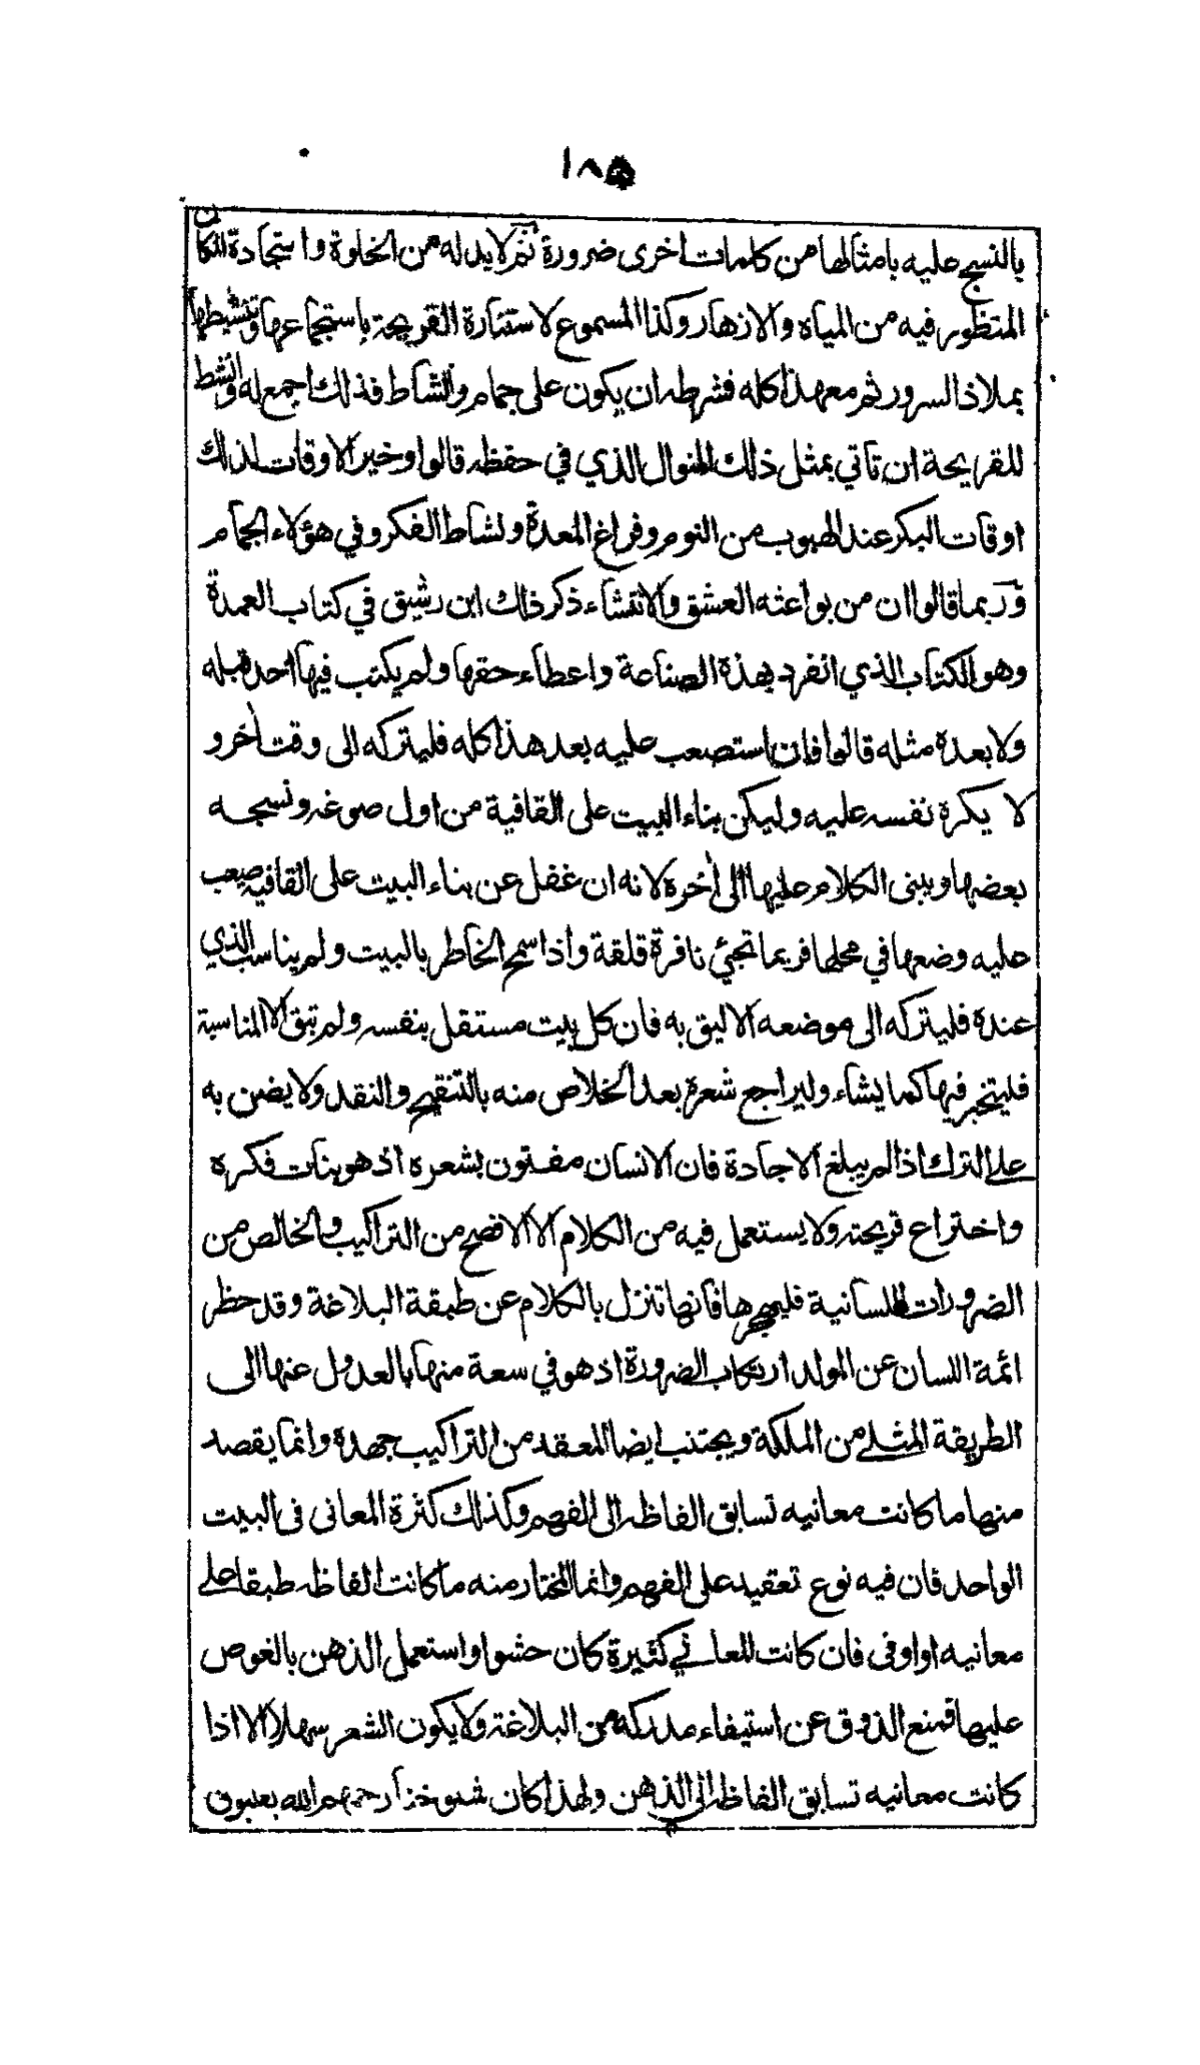 ١٨٥
بالنسج عليه بامثالها من كلمات اخرى ضرورة ثم لا بد له من الخلوة واستجادة المكان
المنظور فيه من المياه والازهار وكذا المسموع لاستنارة القريحة باستجماعها وتنشيطها
بملاذ السرور ثم مع هذا كله فشرطه ان يكون على جمام ونشاط فذلك اجمع له وانشط
للقريحة ان تاتي بمثل ذلك المنوال الذي في حفظه قالوا وخير الاوقات لذلك
اوقات البكر عند الهبوب من النوم وفراغ المعدة ونشاط الفكر وفي هؤلاء الجمام
وربما قالوا ان من بواعثه العشق والانتشاء ذكر ذلك ابن رشيق في كتاب العمدة
وهو الكتاب الذي انفرد بهذة الصناعة واعطاء حقها ولم يكتب فيها احد قبله
ولا بعدة مثله قالوا فان استصعب عليه بعد هذا كله فليتركه الى وقت اٰخر و
لا يكرة نفسه عليه وليكن بناء البيت على القافية من اول صوغه ونسجه
بعضها ويبنى الكلام عليها الى اٰخره لانه ان غفل عن بناء البيت على القافيه صعب
عليه وضعها في محلها فربما تجئي نافرة قلقة واذا سمح الخاطر بالبيت ولم يناسب الذي
عندة فليتركه الى موضعه الاليق به فان كل بيت مستقل بنفسه ولم تبق الا المناسبة
فليتخير فيها كما يشاء وليراجع شعرة بعد الخلاص منه بالتنقيح والنقد ولا يضن به
على الترك اذا لم يبلغ الاجادة فان الانسان مفتون بشعره اذ هو بنات فكره
واختراع قريحته ولا يستعمل فيه من الكلام الا الافصح من التراكيب والخالص من
الضرورات اللسانية فليهجرها فانها تنزل بالكلام عن طبقة البلاغة وقد حظر
ائمة اللسان عن المولد ارتكاب الضرورة اذ هو في سعة منها بالعدول عنها الى
الطريقة المثلى من الملكة ويجتنب ايضا المعقد من التراكيب جهدة وانما يقصد
منها ما كانت معانيه تسابق الفاظه الى الفهم وكذلك كثرة المعانى فى البيت
الواحد فان فيه نوع تعقيد على الفهم وانما المختار منه ما كانت الفاظه طبقا على
معانيه او اوفى فان كانت المعاني كثيرة كان حشوا واستعمل الذهن بالغوص
عليها فمنع الذوق عن استيفاء مدركه من البلاغة ولا يكون الشعر سهلا الا اذا
كانت معانيه تسابق الفاظه الى الذهن ولهذا كان شيوخنا رحمهم الله يعيبون